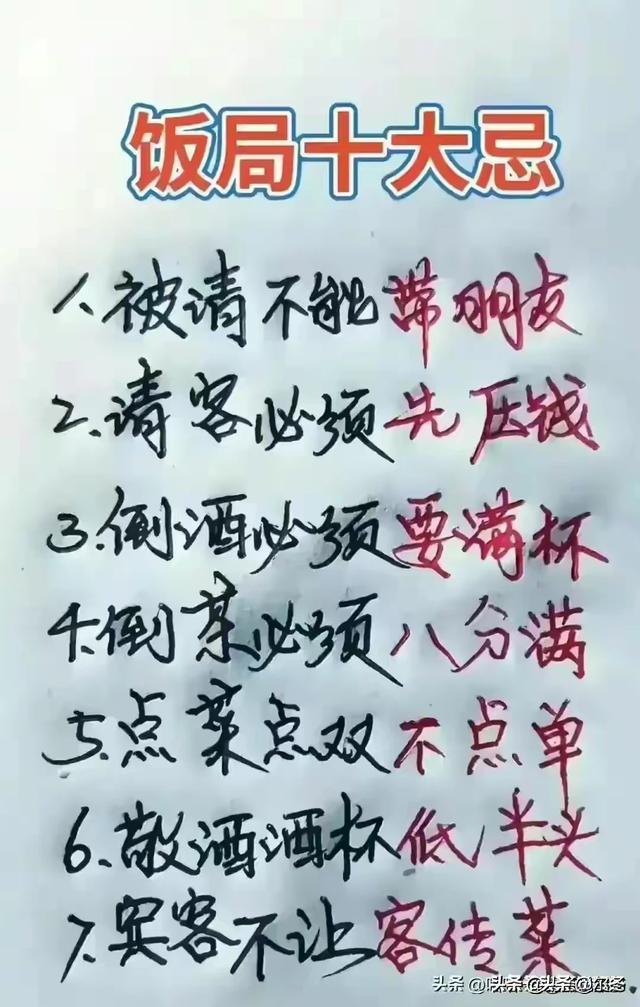 饭局十大忌
1.被请不能带朋友
2.请客必须先压钱
3.倒酒必须要满杯
4.倒茶必须八分满
5.点菜点双不点单
6.敬酒酒杯低半头
7.宾客不让客传菜
头条 @头条 @